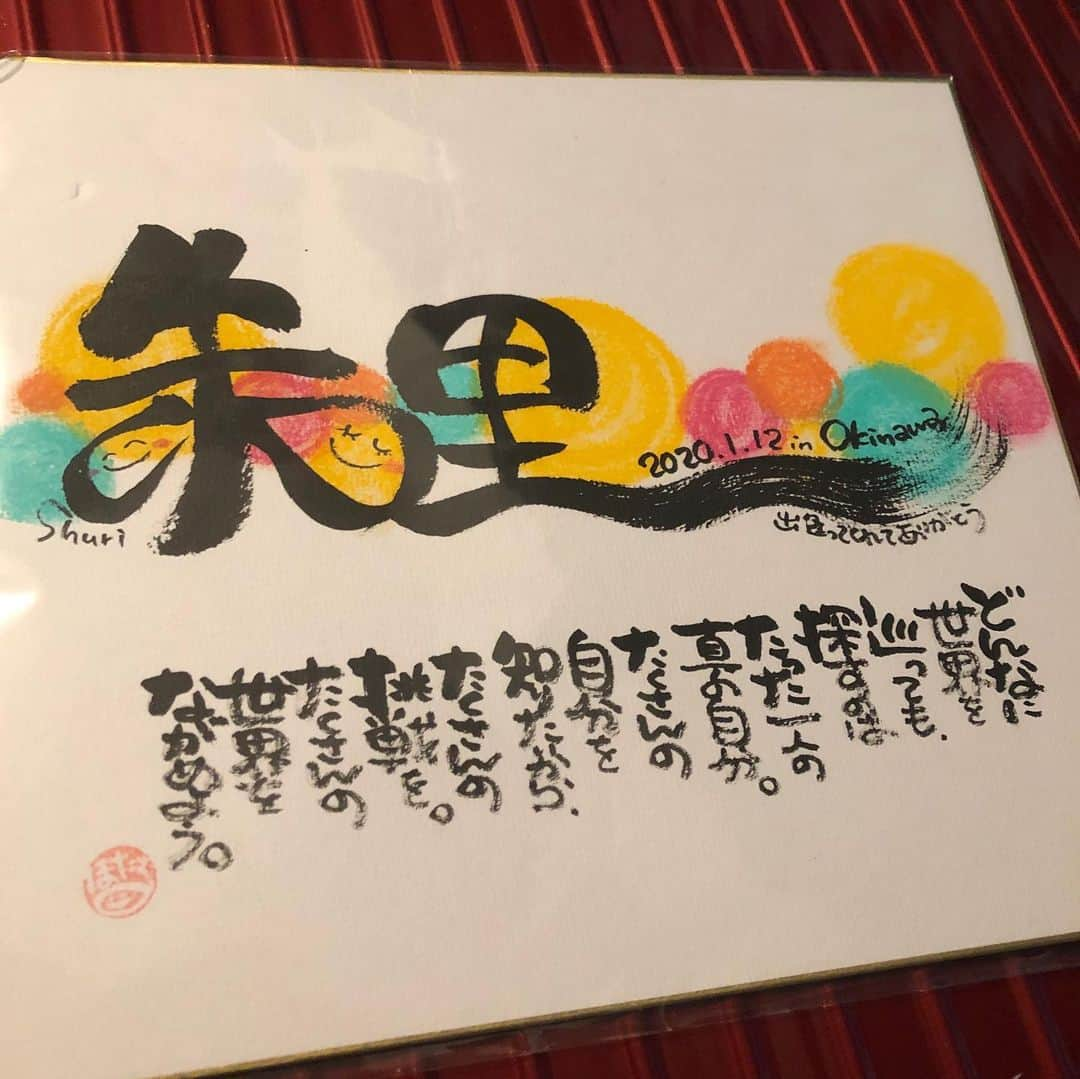 朱里
Shuri
2020.1.12 in Okinawa
出逢ってくれてありがとう
どんなに
世界を
巡っても、
探すのは
たった一人の
真の自分。
たくさんの
自分を
知りたから、
たくさんの
挑戦を。
たくさんの
世界を
ながめよう。